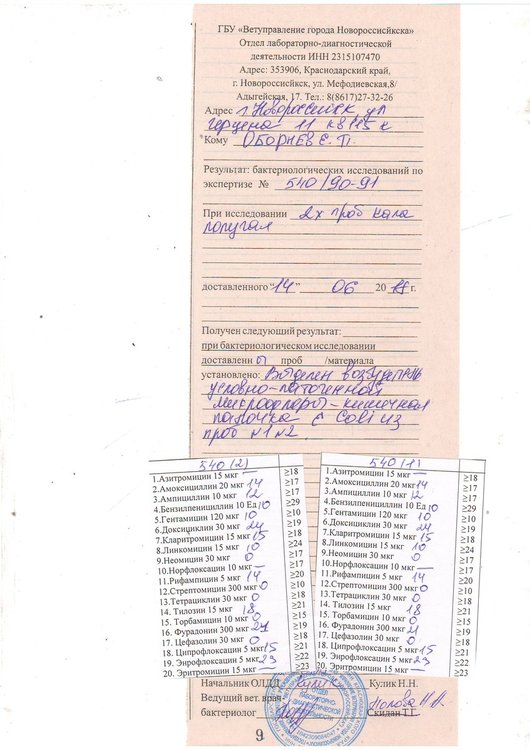 ГБУ «Ветуправление города Новороссийкска»
Отдел лабораторно-диагностической
деятельности ИНН 2315107470
Адрес: 353906, Краснодарский край,
г. Новороссийск, ул. Мефодиевская,8/
Адыгейская, 17. Тел.: 8(8617)27-32-26
Адрес г. Новороссийск ул
герцена 11 кв
Кому Оборнев Е. П.
Результат: бактериологических исследований по
экспертизе № 540/90-91
При исследовании 2х проб кала
попугая
доставленного "14" 06 20 г.
Получен следующий результат:
при бактериологическом исследовании
доставленн ы проб /материала
установлено: Выделен возбудитель
условно-патогенной
микрофлоры-кишечная
палочка E Coli из
проб №1 №2.
540 (2)
1.Азитромицин 15 мкг — ≥18
2.Амоксициллин 20 мкг 14 ≥17
3.Ампициллин 10 мкг 12 ≥17
4.Бензилпенициллин 10 Ед 10 ≥29
5.Гентамицин 120 мкг 10 ≥10
6.Доксициклин 30 мкг 24 ≥19
7.Кларитромицин 15 мкг 15 ≥18
8.Линкомицин 15 мкг 10 ≥24
9.Неомицин 30 мкг 0 ≥17
10.Норфлоксацин 10 мкг — ≥17
11.Рифампицин 5 мкг 14 ≥20
12.Стрептомицин 300 мкг 0
13.Тетрациклин 30 мкг 0
14. Тилозин 15 мкг 18 ≥21
15. Торбамицин 10 мкг 0 ≥15
16. Фурадонин 300 мкг 21 ≥19
17. Цефазолин 30 мкг 0 ≥18
18. Ципрофлоксацин 5 мкг 15 ≥21
19. Энрофлоксацин 5 мкг 23 ≥22
20. Эритромицин 15 мкг — ≥23
540 (1)
1.Азитромицин 15 мкг — ≥18
2.Амоксициллин 20 мкг 14 ≥17
3.Ампициллин 10 мкг 12 ≥17
4.Бензилпенициллин 10 Ед 10 ≥29
5.Гентамицин 120 мкг 10 ≥10
6.Доксициклин 30 мкг 24 ≥19
7.Кларитромицин 15 мкг 15 ≥18
8.Линкомицин 15 мкг 10 ≥24
9.Неомицин 30 мкг 0 ≥17
10.Норфлоксацин 10 мкг — ≥17
11.Рифампицин 5 мкг 14 ≥20
12.Стрептомицин 300 мкг 0
13.Тетрациклин 30 мкг 0
14. Тилозин 15 мкг 18 ≥21
15. Торбамицин 10 мкг 0 ≥15
16. Фурадонин 300 мкг 21 ≥19
17. Цефазолин 30 мкг 0 ≥18
18. Ципрофлоксацин 5 мкг 15 ≥21
19. Энрофлоксацин 5 мкг 23 ≥22
20. Эритромицин 15 мкг — ≥23
Начальник ОЛДД Кулик Н.Н.
Ведущий вет. врач- Попова Н.Н.
бактериолог Скидан Т.Г.
9